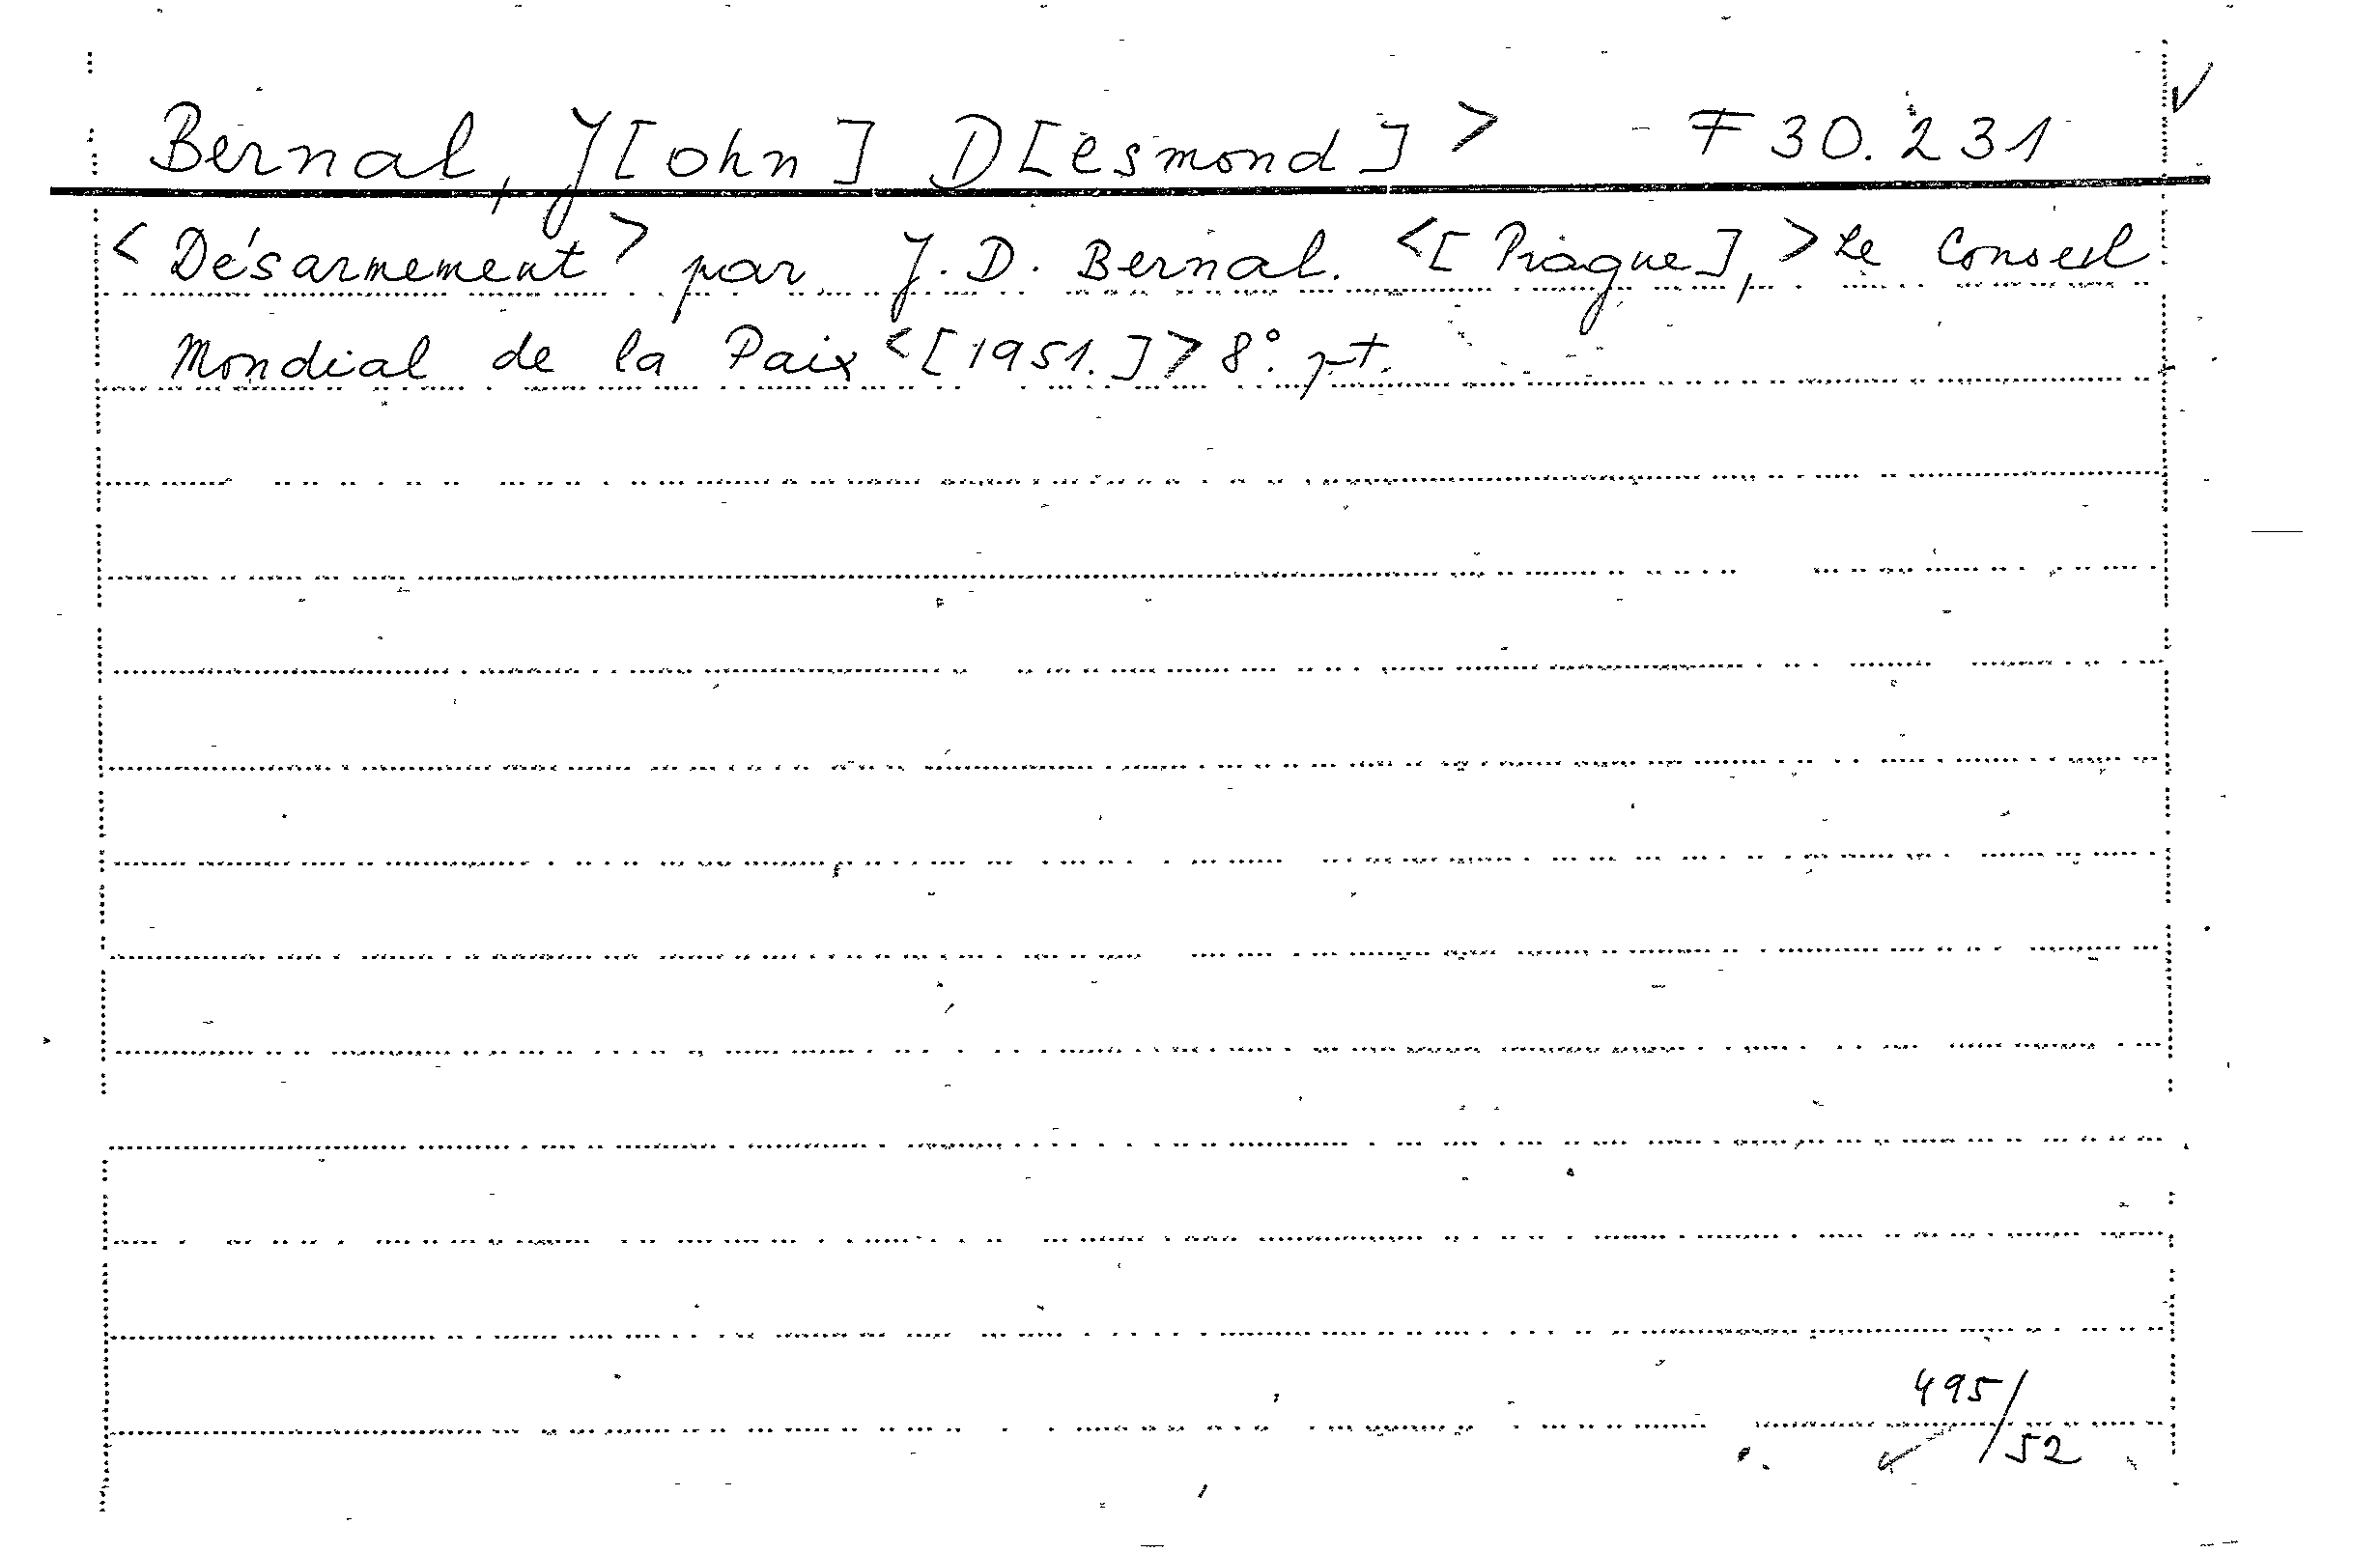 Bernal, J[ohn] D[esmond] > F 30.231
< Désarmement > par J. D. Bernal. <[Prague], > Le Conseil
Mondial de la Paix <[1951.]> 8°. pt.
495/52